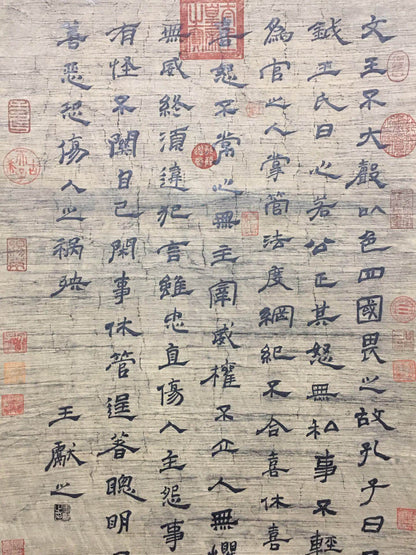 文王不大聲以色四國畏之故孔子曰
鉞王氏曰心若公正其怒無私事不輕
為官之人掌管法度綱紀不合喜休喜
喜怒不常心無主宰威權不立人無懼
無威終須違犯言雖忠直傷人主怨事
有怪不關自己閑事休管逞著聰明
善惡恐傷人之禍殃
王獻之